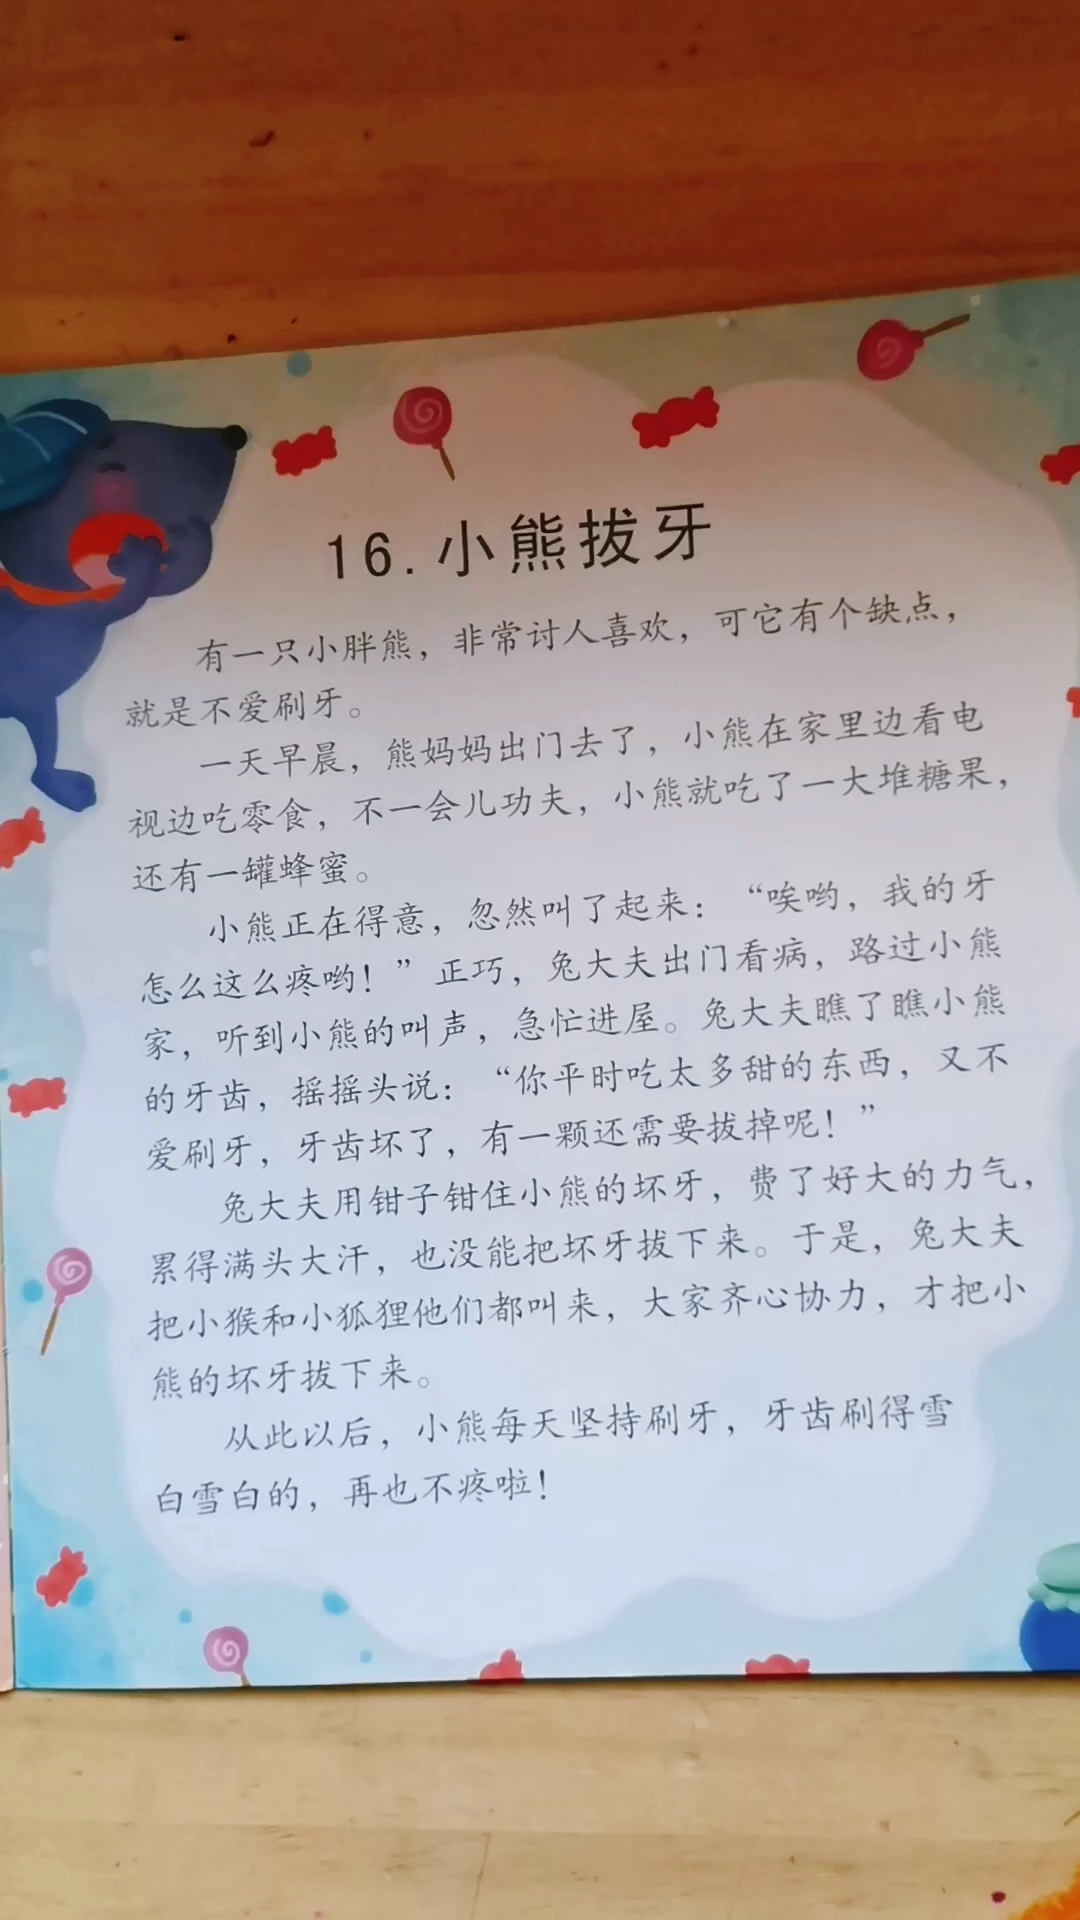 16.小熊拔牙
有一只小胖熊，非常讨人喜欢，可它有个缺点，
就是不爱刷牙。
一天早晨，熊妈妈出门去了，小熊在家里边看电
视边吃零食，不一会儿功夫，小熊就吃了一大堆糖果，
还有一罐蜂蜜。
小熊正在得意，忽然叫了起来：“唉哟，我的牙
怎么这么疼哟！”正巧，兔大夫出门看病，路过小熊
家，听到小熊的叫声，急忙进屋。兔大夫瞧了瞧小熊
的牙齿，摇摇头说：“你平时吃太多甜的东西，又不
爱刷牙，牙齿坏了，有一颗还需要拔掉呢！”
兔大夫用钳子钳住小熊的坏牙，费了好大的力气，
累得满头大汗，也没能把坏牙拔下来。于是，兔大夫
把小猴和小狐狸他们都叫来，大家齐心协力，才把小
熊的坏牙拔下来。
从此以后，小熊每天坚持刷牙，牙齿刷得雪
白雪白的，再也不疼啦！